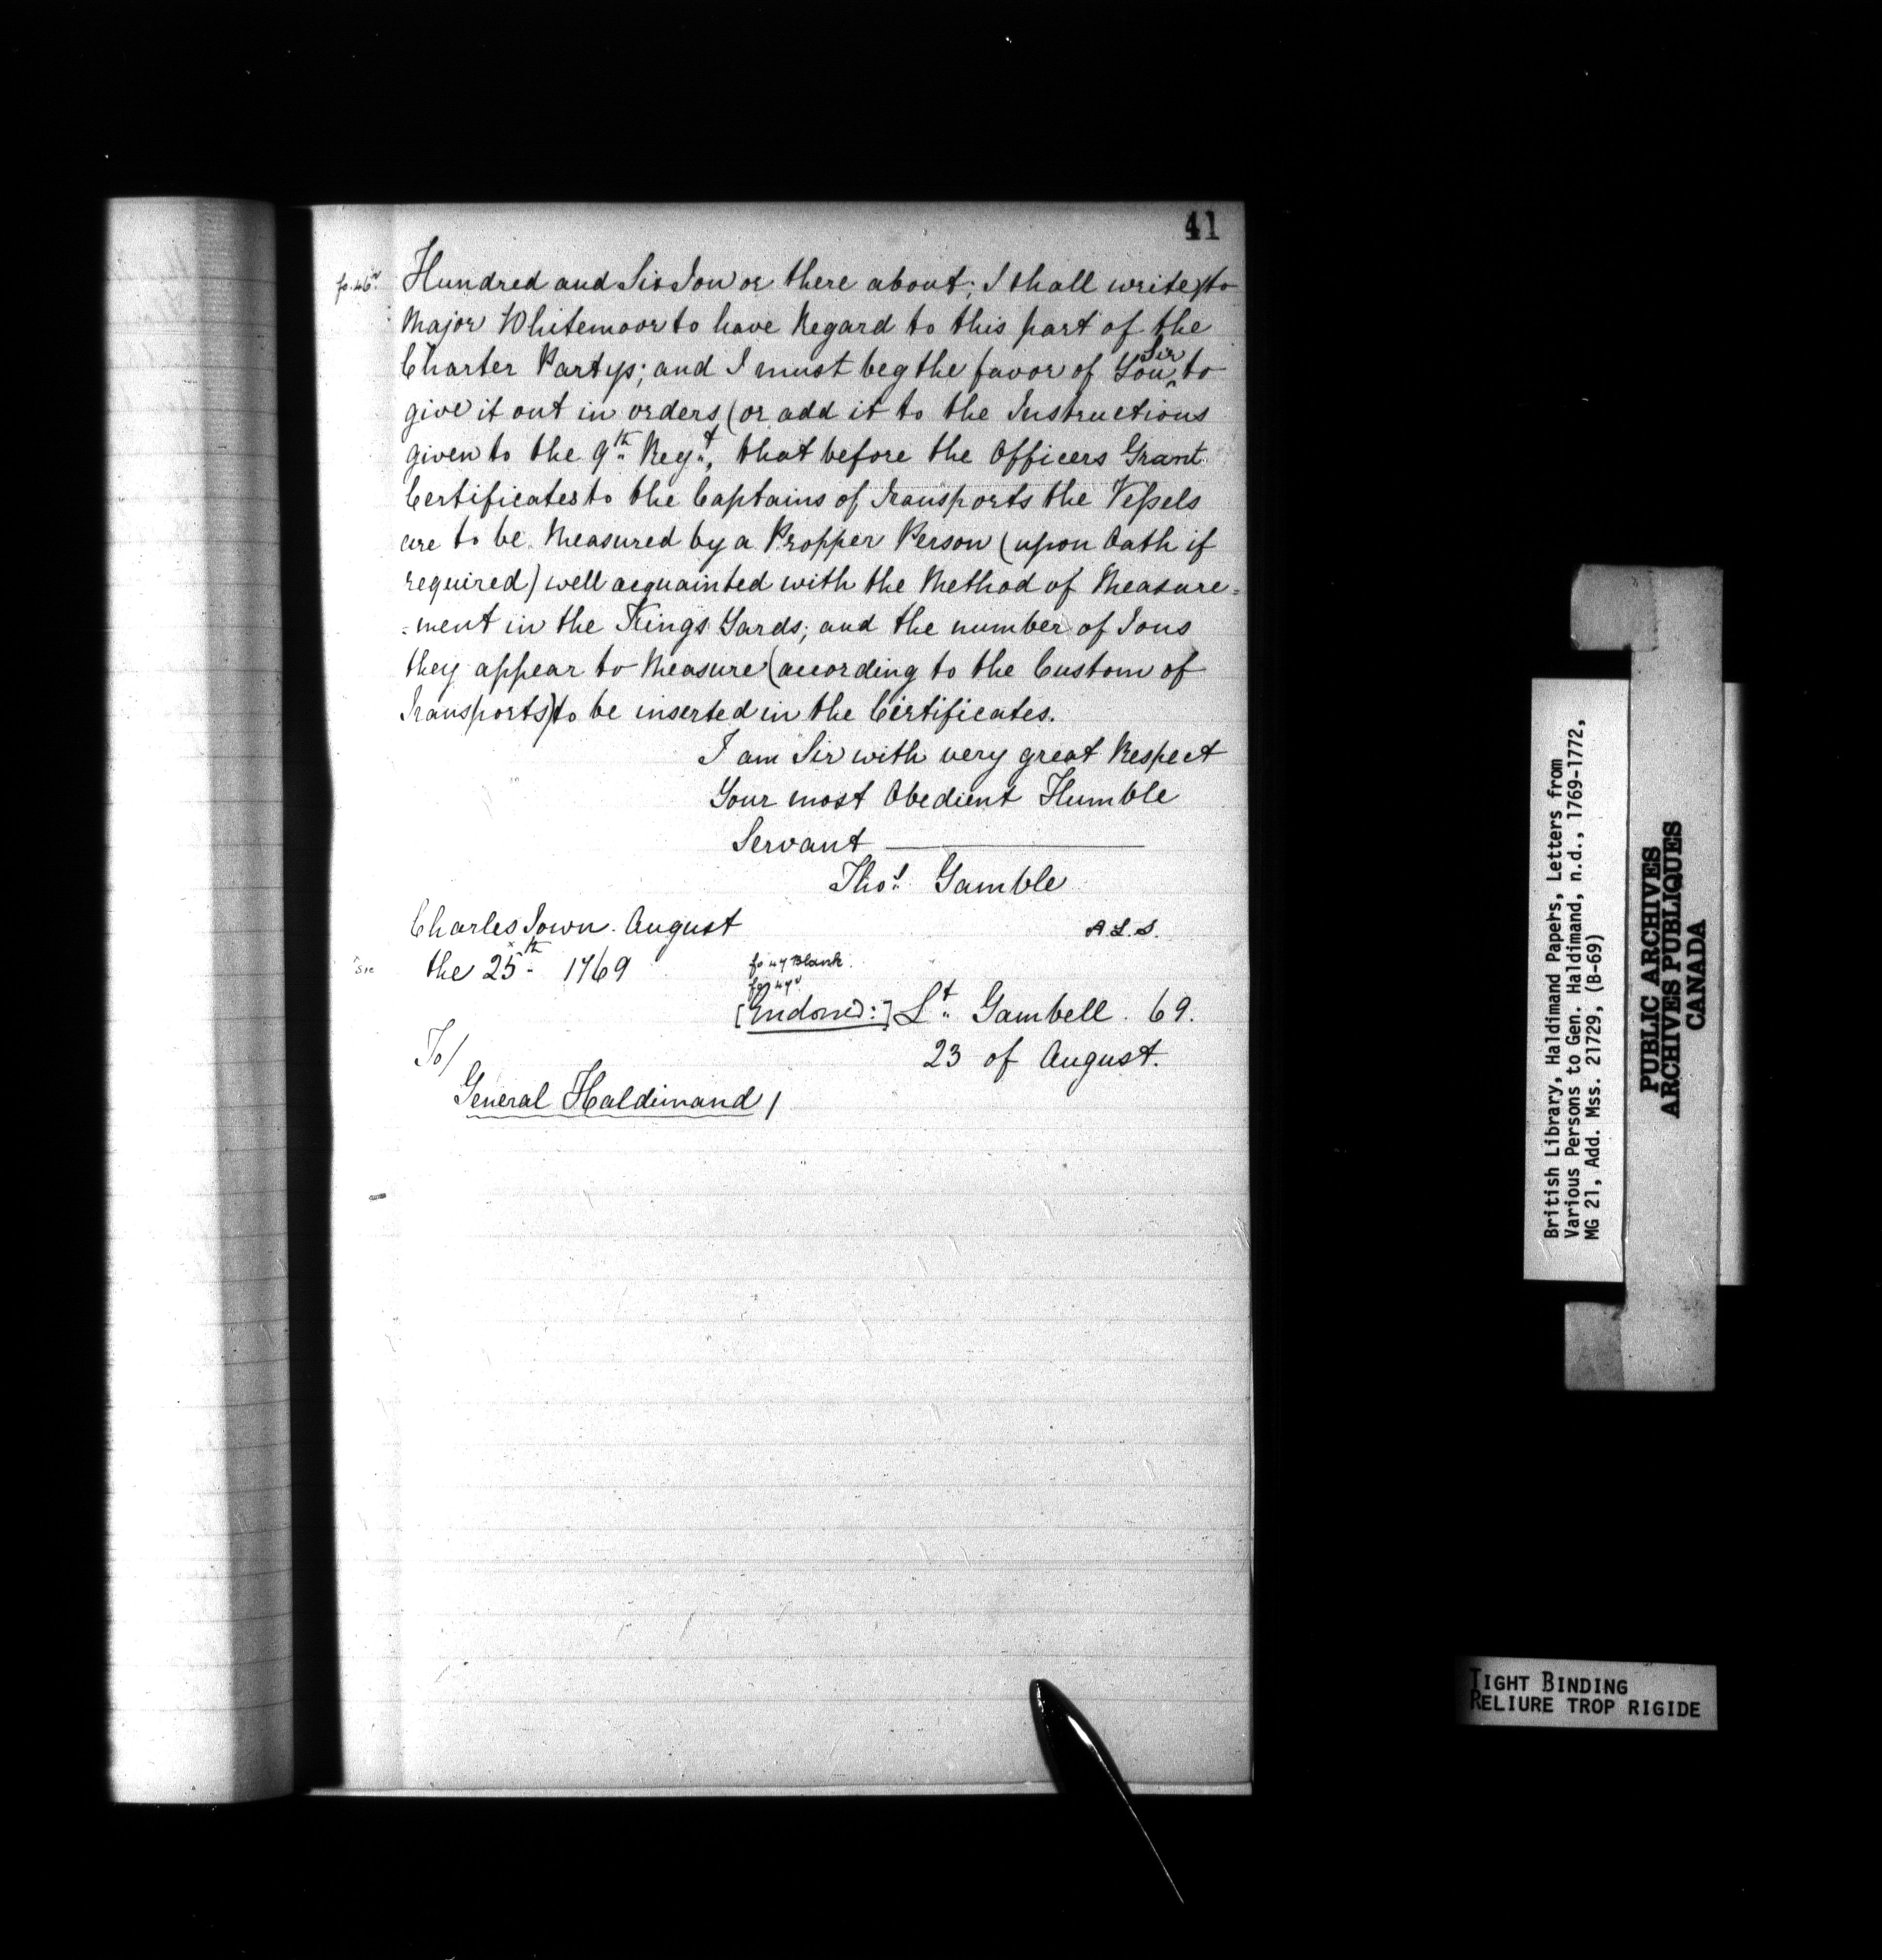 41
fo. 46v Hundred and Six Ton or there about; I shall write to
Major Whitemoor to have Regard to this part of the
Charter Partys; and I must beg the favor of You ^Sir to
give it out in orders (or add it to the Instructions
given to the 9th Regt, that before the Officers Grant
Certificates to the Captains of Transports the Veſsels
are to be Measured by a Propper Person (upon Oath if
required) well acquainted with the Method of Measure=
=ment in the Kings Yards; and the number of Tons
they appear to Measure (according to the Custom of
Transports) to be inserted in the Certificates.
I am Sir with very great Respect
Your most Obedient Humble
Servant
Thos Gamble
Charles Town. August
A.L.S.
xsic the 25xth 1769
fo 47 Blank.
fo 47v
[Endorsed:] Lt Gambell. 69.
23 of August.
To/
General Haldimand/
British Library, Haldimand Papers, Letters from
Various Persons to Gen. Haldimand, n.d., 1769-1772,
MG 21, Add. Mss. 21729, (B-69)
PUBLIC ARCHIVES
ARCHIVES PUBLIQUES
CANADA
TIGHT BINDING
RELIURE TROP RIGIDE